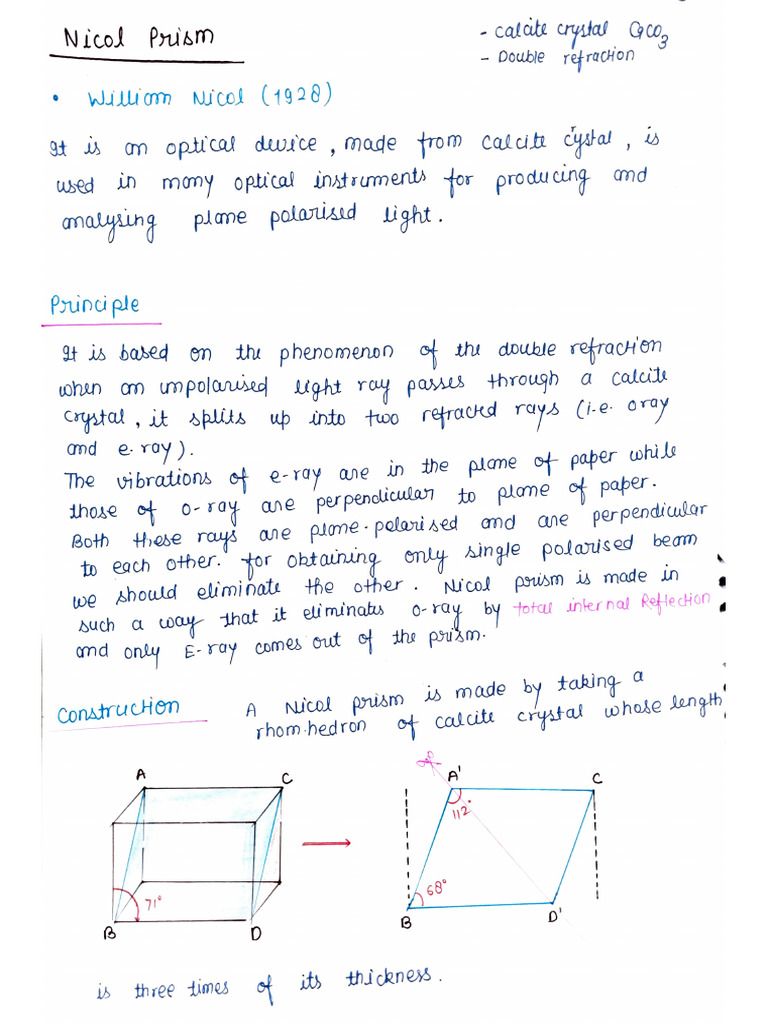 Nicol Prism
- calcite crystal CaCO3
- Double refraction
• William Nicol (1928)
It is an optical device, made from calcite cystal, is
used in many optical instruments for producing and
analysing plane polarised light.
Principle
It is based on the phenomenon of the double refraction
when an unpolarised light ray passes through a calcite
crystal, it splits up into two refracted rays (i.e. oray
and e.ray).
The vibrations of e-ray are in the plane of paper while
those of o-ray are perpendicular to plane of paper.
Both these rays are plane-polarised and are perpendicular
to each other. for obtaining only single polarised beam
we should eliminate the other. Nicol prism is made in
such a way that it eliminates o-ray by total internal Reflection
and only E-ray comes out of the prism.
Construction A Nicol prism is made by taking a
rhom.hedron of calcite crystal whose length
A C
71°
B D
A' C
112°
68°
B D'
is three times of its thickness.